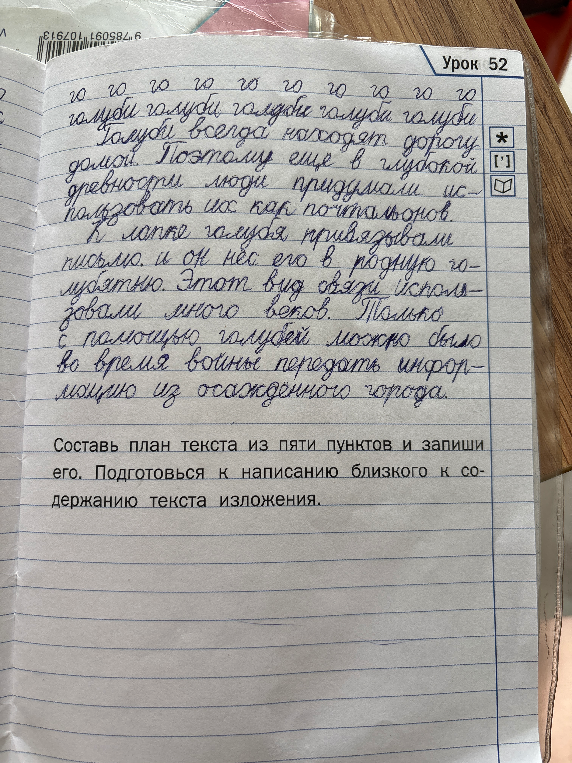 9 785091 107913
Урок 52
го го го го го го го го го го
голуби голуби голуби голуби голуби
Голуби всегда находят дорогу
домой. Поэтому ещё в глубокой
древности люди придумали ис-
пользовать их как почтальонов.
К лапке голубя привязывали
письмо и он нёс его в родную го-
лубятню. Этот вид связи исполь-
зовали много веков. Только
с помощью голубей можно было
во время войны передать инфор-
мацию из осаждённого города.
Составь план текста из пяти пунктов и запиши
его. Подготовься к написанию близкого к со-
держанию текста изложения.